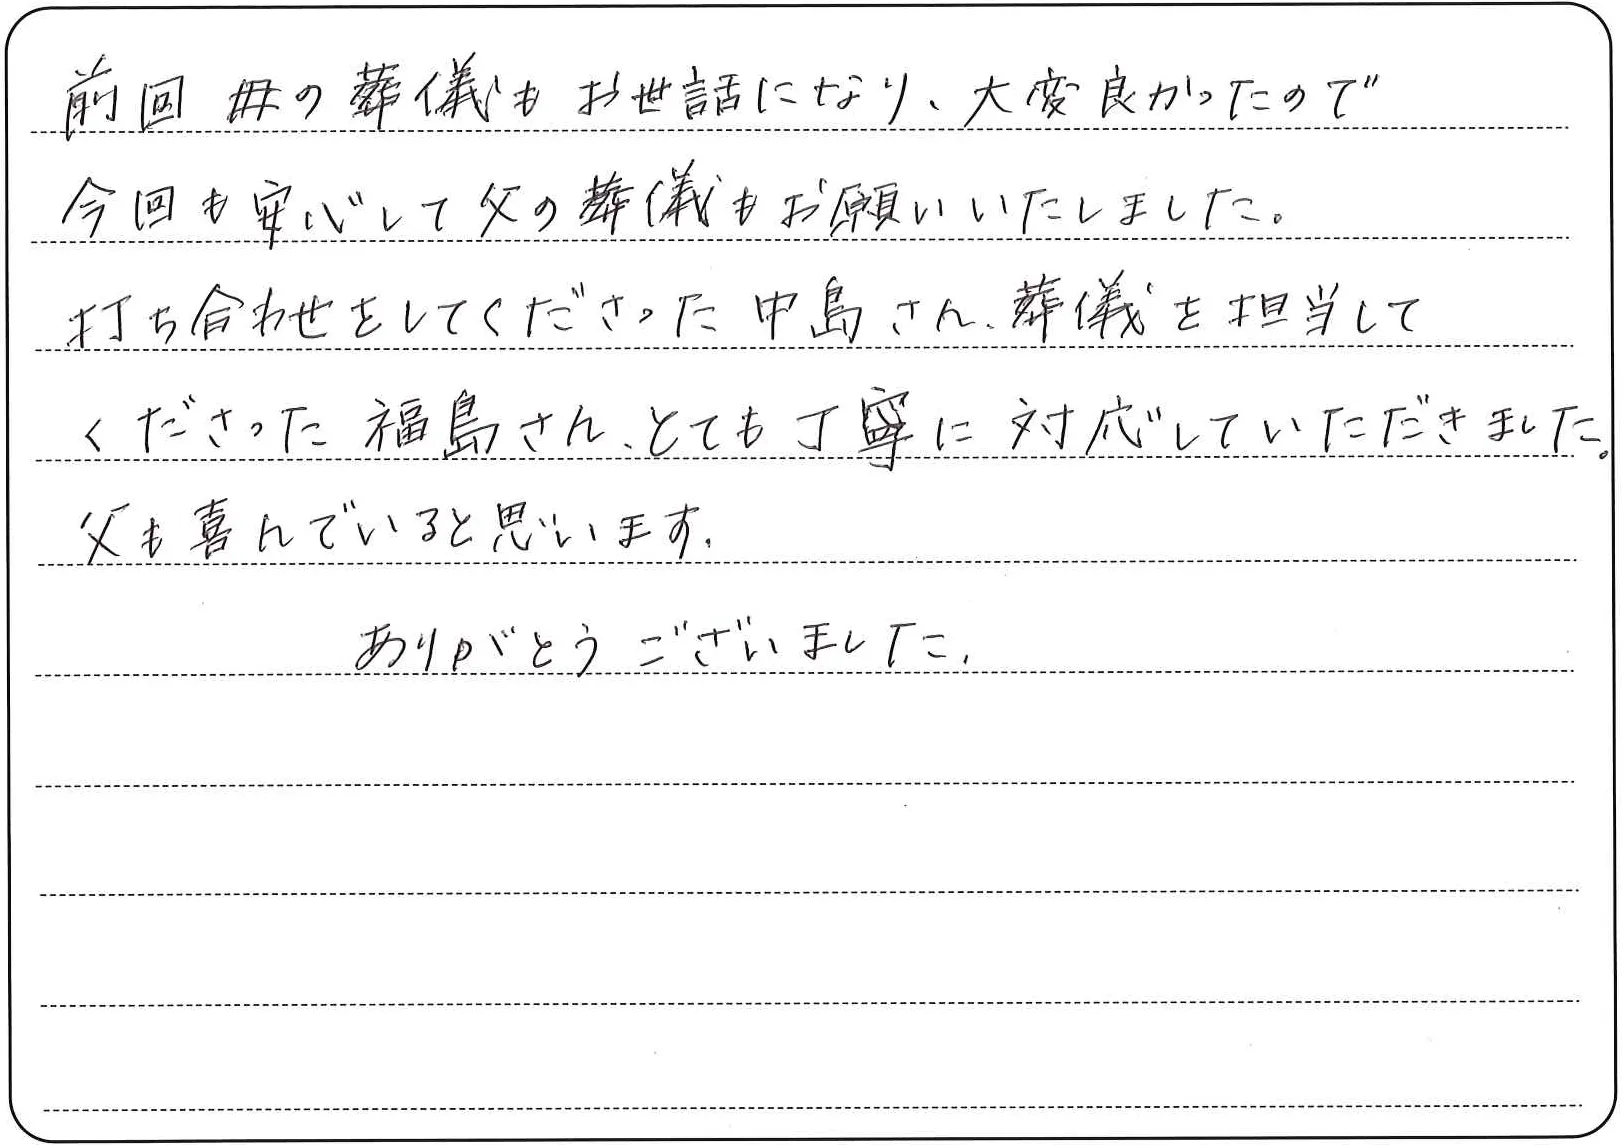 前回 母の葬儀もお世話になり、大変良かったので
今回も安心して父の葬儀もお願いいたしました。
打ち合わせをしてくださった中島さん、葬儀を担当して
くださった福島さん、とても丁寧に対応していただきました。
父も喜んでいると思います。
ありがとうございました。